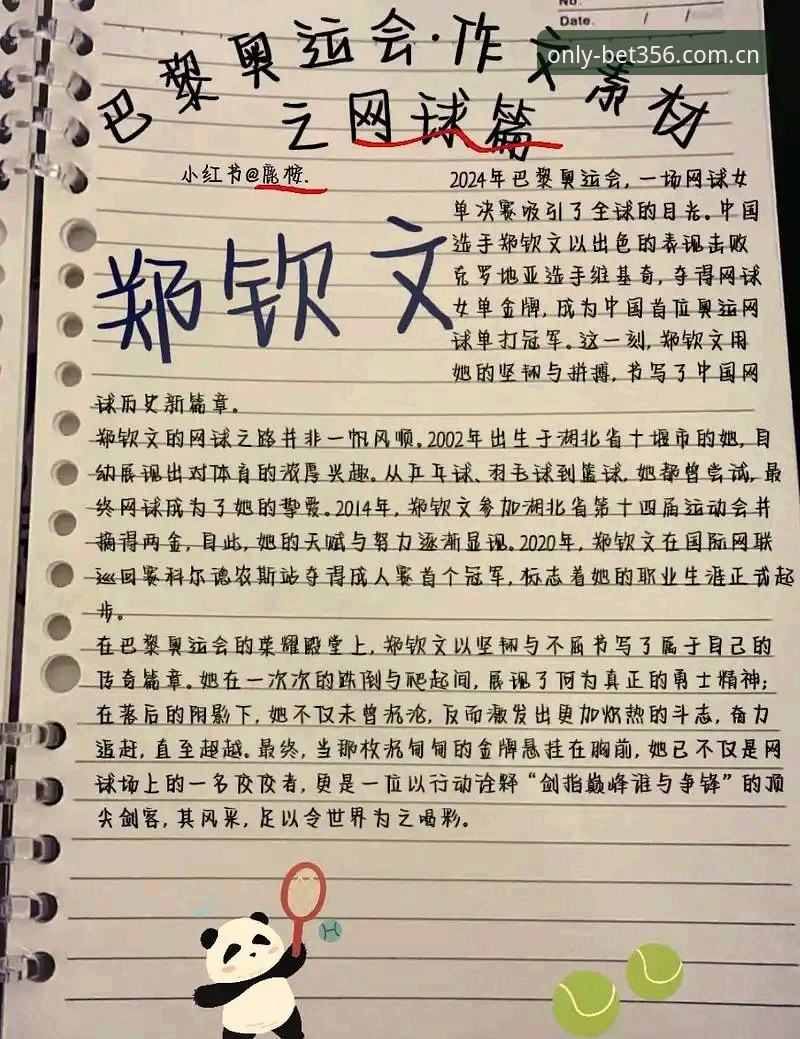 No.
Date. / /
only-bet356.com.cn
巴黎奥运会·作文素材
之网球篇
小红书@鹿桉.
郑钦文
2024年巴黎奥运会,一场网球女
单决赛吸引了全球的目光。中国
选手郑钦文以出色的表现击败
克罗地亚选手维基奇,夺得网球
女单金牌,成为中国首位奥运网
球单打冠军。这一刻,郑钦文用
她的坚韧与拼搏,书写了中国网
球历史新篇章。
郑钦文的网球之路并非一帆风顺。2002年出生于湖北省十堰市的她,自
幼展现出对体育的浓厚兴趣。从乒乓球、羽毛球到篮球,她都曾尝试,最
终网球成为了她的挚爱。2014年,郑钦文参加湖北省第十四届运动会并
摘得两金,自此,她的天赋与努力逐渐显现。2020年,郑钦文在国际网联
巡回赛科尔德农斯站夺得成人赛首个冠军,标志着她的职业生涯正式起
步。
在巴黎奥运会的荣耀殿堂上,郑钦文以坚韧与不屈书写了属于自己的
传奇篇章。她在一次次的跌倒与爬起间,展现了何为真正的勇士精神;
在落后的阴影下,她不仅未曾沉沦,反而激发出更加炽热的斗志,奋力
追赶,直至超越。最终,当那枚沉甸甸的金牌悬挂在胸前,她已不仅是网
球场上的一名佼佼者,更是一位以行动诠释“剑指巅峰谁与争锋”的顶
尖剑客,其风采,足以令世界为之喝彩。